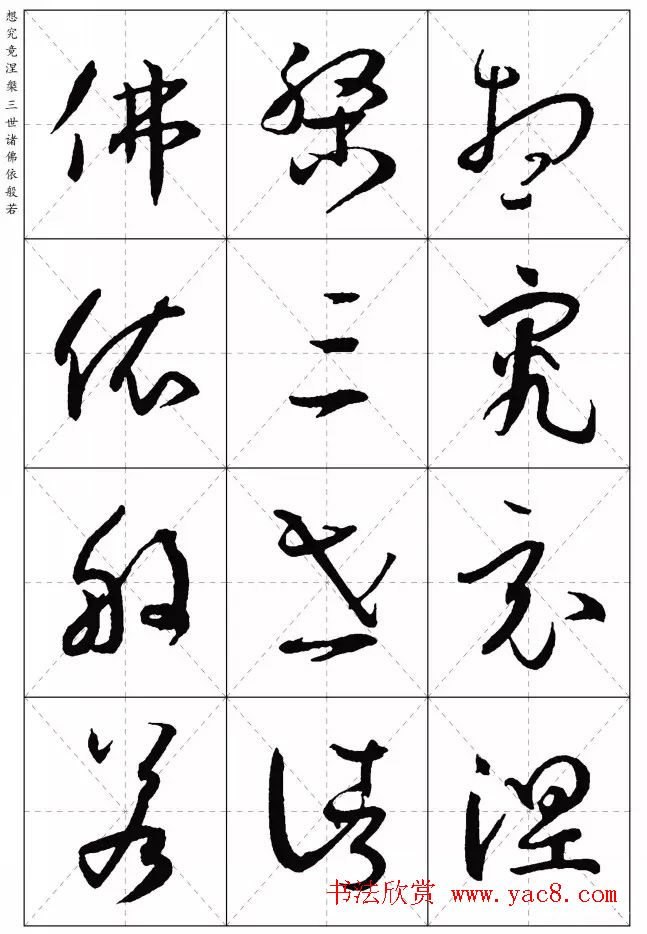 想究竟涅槃三世诸佛依般若
想究竟涅
槃三世诸
佛依般若
书法欣赏 www.yac8.com